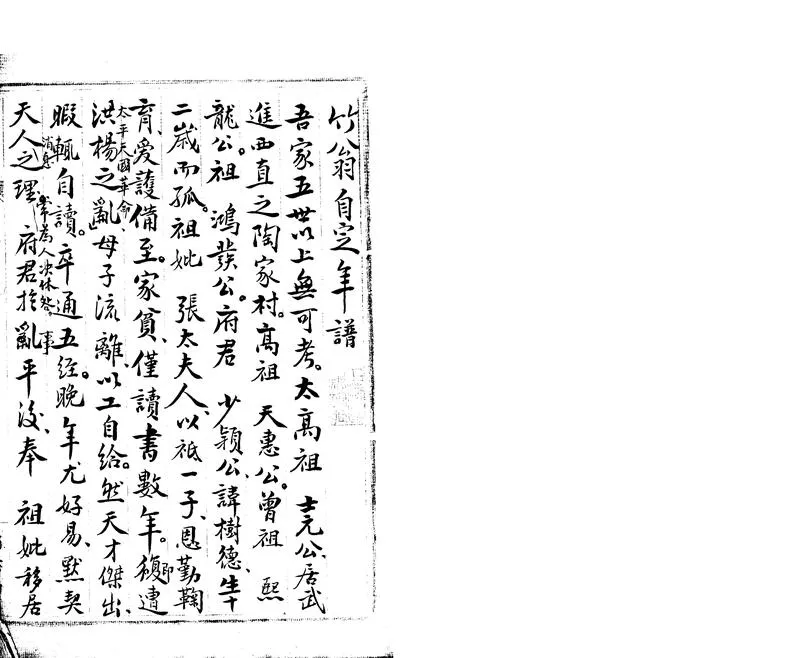 竹翁自定年譜
吾家五世以上無可考。太高祖 士元公、居武
進西直之陶家村。高祖 天惠公。曾祖 熙
龍公。祖 鴻發公。府君 少穎公、諱樹德、生十
二歲而孤。祖妣 張太夫人、以祇一子、恩勤鞠
育、愛護備至。家貧、僅讀書數年。復遭
太平天國革命、
洪楊之亂、母子流離、以工自給。然天才傑出、
暇輒自讀。卒通五經。晚年尤好易、默契
消息
天人之理 常為人決休咎事
府君於亂平後、奉 祖妣移居